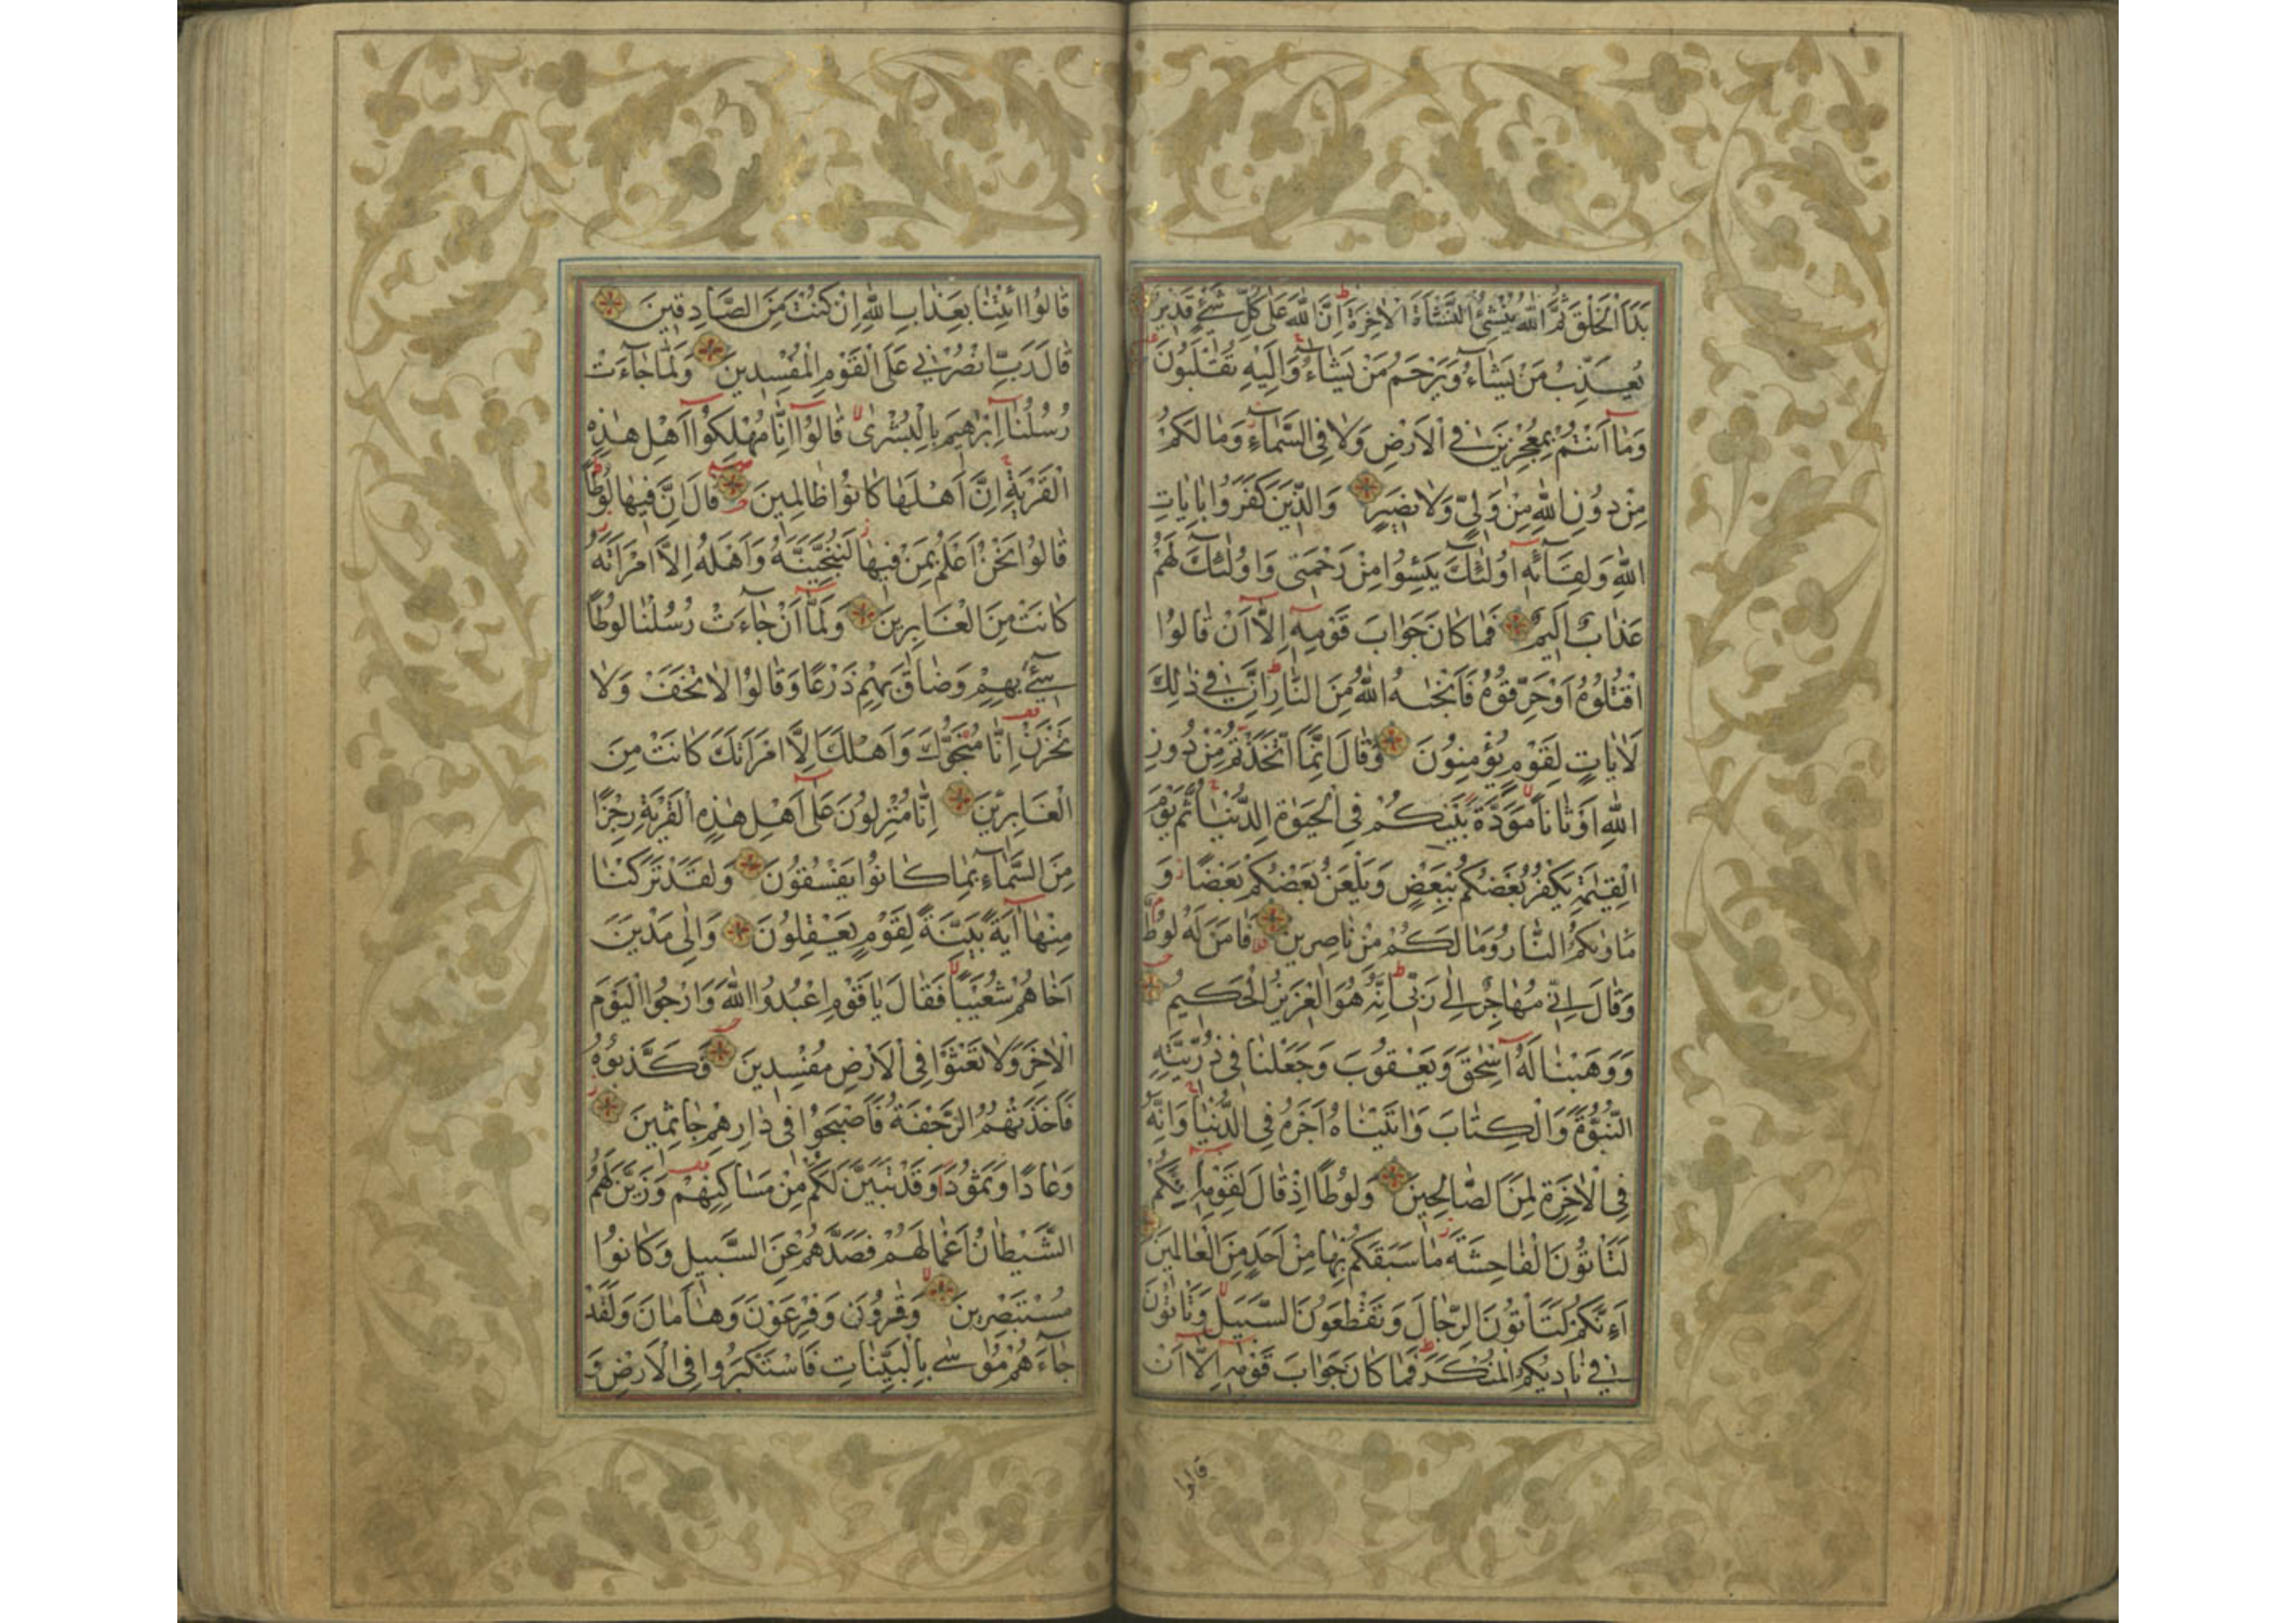 بَدَاَ الْخَلْقَ ثُمَّ اللّٰهُ يُنْشِئُ النَّشْاَةَ الْاٰخِرَةَ اِنَّ اللّٰهَ عَلٰى كُلِّ شَيْءٍ قَدِيرٌ
يُعَذِّبُ مَنْ يَشَاءُ وَيَرْحَمُ مَنْ يَشَاءُ وَاِلَيْهِ تُقْلَبُونَ
وَمَا اَنْتُمْ بِمُعْجِزِينَ فِي الْاَرْضِ وَلَا فِي السَّمَاءِ وَمَا لَكُمْ
مِنْ دُونِ اللّٰهِ مِنْ وَلِيٍّ وَلَا نَصِيرٍ وَالَّذِينَ كَفَرُوا بِاٰيَاتِ
اللّٰهِ وَلِقَائِهِ اُولٰئِكَ يَئِسُوا مِنْ رَحْمَتِي وَاُولٰئِكَ لَهُمْ
عَذَابٌ اَلِيمٌ فَمَا كَانَ جَوَابَ قَوْمِهِ اِلَّا اَنْ قَالُوا
اقْتُلُوهُ اَوْ حَرِّقُوهُ فَاَنْجٰيهُ اللّٰهُ مِنَ النَّارِ اِنَّ فِي ذٰلِكَ
لَاٰيَاتٍ لِقَوْمٍ يُؤْمِنُونَ وَقَالَ اِنَّمَا اتَّخَذْتُمْ مِنْ دُونِ
اللّٰهِ اَوْثَانًا مَوَدَّةَ بَيْنِكُمْ فِي الْحَيٰوةِ الدُّنْيَا ثُمَّ يَوْمَ
الْقِيٰمَةِ يَكْفُرُ بَعْضُكُمْ بِبَعْضٍ وَيَلْعَنُ بَعْضُكُمْ بَعْضًا وَ
مَاْوٰيكُمُ النَّارُ وَمَا لَكُمْ مِنْ نَاصِرِينَ فَاٰمَنَ لَهُ لُوطٌ
وَقَالَ اِنِّي مُهَاجِرٌ اِلٰى رَبِّي اِنَّهُ هُوَ الْعَزِيزُ الْحَكِيمُ
وَوَهَبْنَا لَهُ اِسْحٰقَ وَيَعْقُوبَ وَجَعَلْنَا فِي ذُرِّيَّتِهِ
النُّبُوَّةَ وَالْكِتَابَ وَاٰتَيْنَاهُ اَجْرَهُ فِي الدُّنْيَا وَاِنَّهُ
فِي الْاٰخِرَةِ لَمِنَ الصَّالِحِينَ وَلُوطًا اِذْ قَالَ لِقَوْمِهِ اِنَّكُمْ
لَتَاْتُونَ الْفَاحِشَةَ مَا سَبَقَكُمْ بِهَا مِنْ اَحَدٍ مِنَ الْعَالَمِينَ
اَئِنَّكُمْ لَتَاْتُونَ الرِّجَالَ وَتَقْطَعُونَ السَّبِيلَ وَتَاْتُونَ
فِي نَادِيكُمُ الْمُنْكَرَ فَمَا كَانَ جَوَابَ قَوْمِهِ اِلَّا اَنْ
قالوا
قَالُوا ائْتِنَا بِعَذَابِ اللّٰهِ اِنْ كُنْتَ مِنَ الصَّادِقِينَ
قَالَ رَبِّ انْصُرْنِي عَلَى الْقَوْمِ الْمُفْسِدِينَ وَلَمَّا جَاءَتْ
رُسُلُنَا اِبْرٰهِيمَ بِالْبُشْرٰى قَالُوا اِنَّا مُهْلِكُوا اَهْلِ هٰذِهِ
الْقَرْيَةِ اِنَّ اَهْلَهَا كَانُوا ظَالِمِينَ قَالَ اِنَّ فِيهَا لُوطًا
قَالُوا نَحْنُ اَعْلَمُ بِمَنْ فِيهَا لَنُنَجِّيَنَّهُ وَاَهْلَهُ اِلَّا امْرَاَتَهُ
كَانَتْ مِنَ الْغَابِرِينَ وَلَمَّا اَنْ جَاءَتْ رُسُلُنَا لُوطًا
سِيءَ بِهِمْ وَضَاقَ بِهِمْ ذَرْعًا وَقَالُوا لَا تَخَفْ وَلَا
تَحْزَنْ اِنَّا مُنَجُّوكَ وَاَهْلَكَ اِلَّا امْرَاَتَكَ كَانَتْ مِنَ
الْغَابِرِينَ اِنَّا مُنْزِلُونَ عَلٰى اَهْلِ هٰذِهِ الْقَرْيَةِ رِجْزًا
مِنَ السَّمَاءِ بِمَا كَانُوا يَفْسُقُونَ وَلَقَدْ تَرَكْنَا
مِنْهَا اٰيَةً بَيِّنَةً لِقَوْمٍ يَعْقِلُونَ وَاِلٰى مَدْيَنَ
اَخَاهُمْ شُعَيْبًا فَقَالَ يَا قَوْمِ اعْبُدُوا اللّٰهَ وَارْجُوا الْيَوْمَ
الْاٰخِرَ وَلَا تَعْثَوْا فِي الْاَرْضِ مُفْسِدِينَ فَكَذَّبُوهُ
فَاَخَذَتْهُمُ الرَّجْفَةُ فَاَصْبَحُوا فِي دَارِهِمْ جَاثِمِينَ
وَعَادًا وَثَمُودَا وَقَدْ تَبَيَّنَ لَكُمْ مِنْ مَسَاكِنِهِمْ وَزَيَّنَ لَهُمُ
الشَّيْطَانُ اَعْمَالَهُمْ فَصَدَّهُمْ عَنِ السَّبِيلِ وَكَانُوا
مُسْتَبْصِرِينَ وَقَارُونَ وَفِرْعَوْنَ وَهَامَانَ وَلَقَدْ
جَاءَهُمْ مُوسٰى بِالْبَيِّنَاتِ فَاسْتَكْبَرُوا فِي الْاَرْضِ وَ